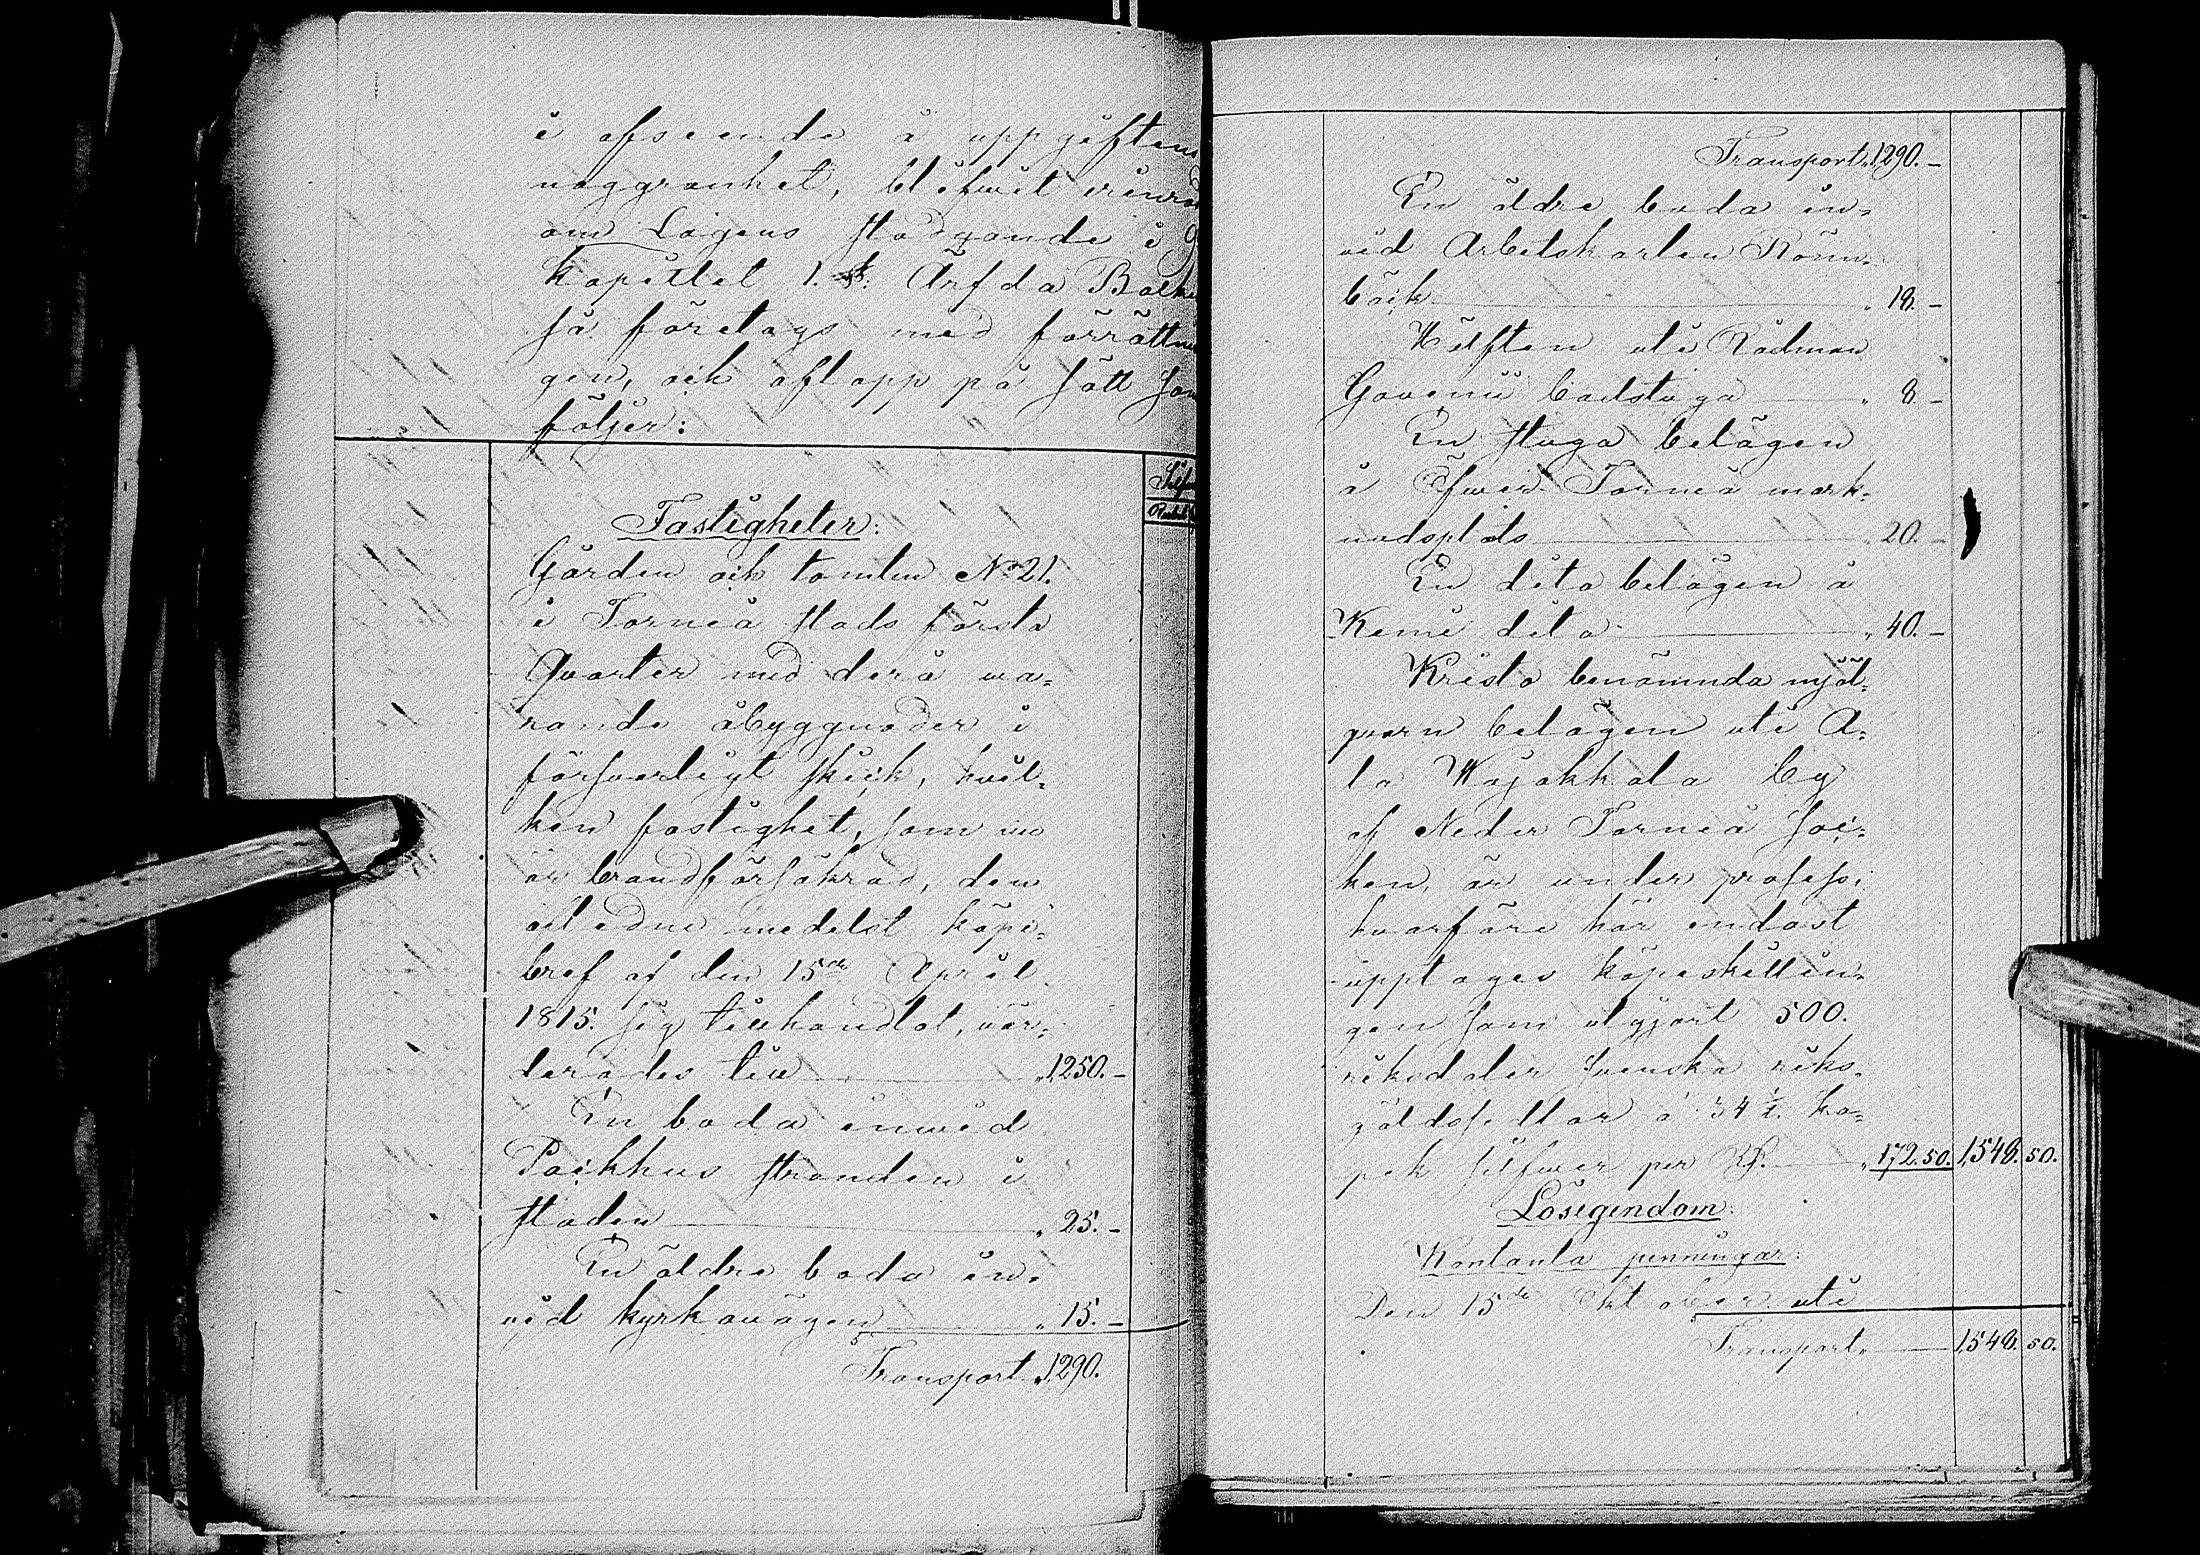 i afseende å uppgiftens
noggranhet, blifwit erinrad
om Lagens stadgande i 9
Kapittel 1. §. Ärfda Balken
så företogs med förrättnin
gen, och aflopp på sätt som
följer:
Silf
Rubel
Fastigheter:
Gården och tomten No 21.
i Torneå stads första
Qvarter med derå wa-
rande åbyggnader i
försvarligt skick, hvil-
ken fastighet, som
är brandförsäkrad, den
aflidne medelst köpe-
bref af den 15de April
1815. sig tillhandlat, vär-
derades till " 1,250. –
En boda inwid
Packhus stranden i
staden " 25. –
En äldre boda in-
vid kyrkovägen " 15. –
Transport " 1,290.
Transport " 1,290. –
En äldre boda in-
vid Arbetskarlen Rönn-
bäck " 18. –
Hälften uti Rådman
Govenii badstuga " 8 –
En stuga belägen
å Öfwer Torneå mark-
nadsplats " 20. –
En dito belägen å
Kemi dito " 40. –
Kristo benämnda mjöl-
qvarn belägen uti A-
la Wojakkala by
af Neder Torneå Soc-
ken, är under process;
hvarföre här endast
upptages köpeskillin-
gen som utgjort 500.
riksdaler Svenska riks-
gäldssedlar à 34 ½ ko-
pek silfwer per Rd. " 172. 50. 1,548. 50.
Lösegendom:
Kontanta penningar:
Den 15de Oktober uti
Transport " 1,548. 50.